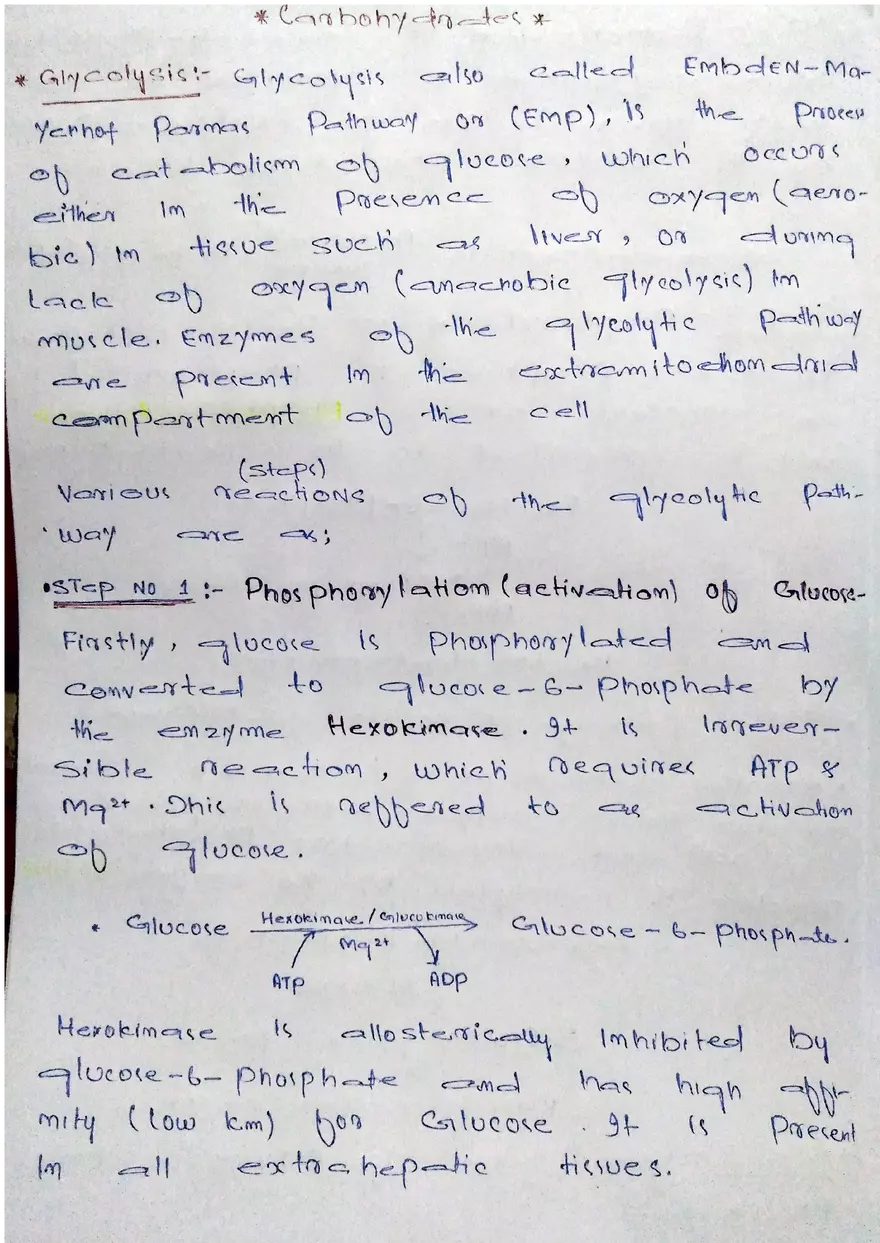 * Carbohydrates *
* Glycolysis:- Glycolysis also called EmbdEN-Ma-
yerhof Parnas Pathway or (EMP), is the process
of catabolism of glucose, which occurs
either in the presence of oxygen (aero-
bic) in tissue such as liver, or during
lack of oxygen (anaerobic glycolysis) in
muscle. Enzymes of the glycolytic pathway
are present in the extramitochondrial
compartment of the cell
(steps)
Various reactions of the glycolytic Path-
way are as;
•Step No 1 :- Phosphorylation (activation) of Glucose-
Firstly, glucose is phosphorylated and
converted to glucose-6-phosphate by
the enzyme Hexokinase. It is Irrever-
sible reaction, which requires ATP &
Mg2+. This is reffered to as activation
of glucose.
• Glucose Hexokinase/Glucokinase Glucose-6-phosphate.
Mg2+
ATP ADP
Hexokinase is allosterically inhibited by
glucose-6-phosphate and has high affi-
nity (low km) for Glucose. It is present
in all extrahepatic tissues.